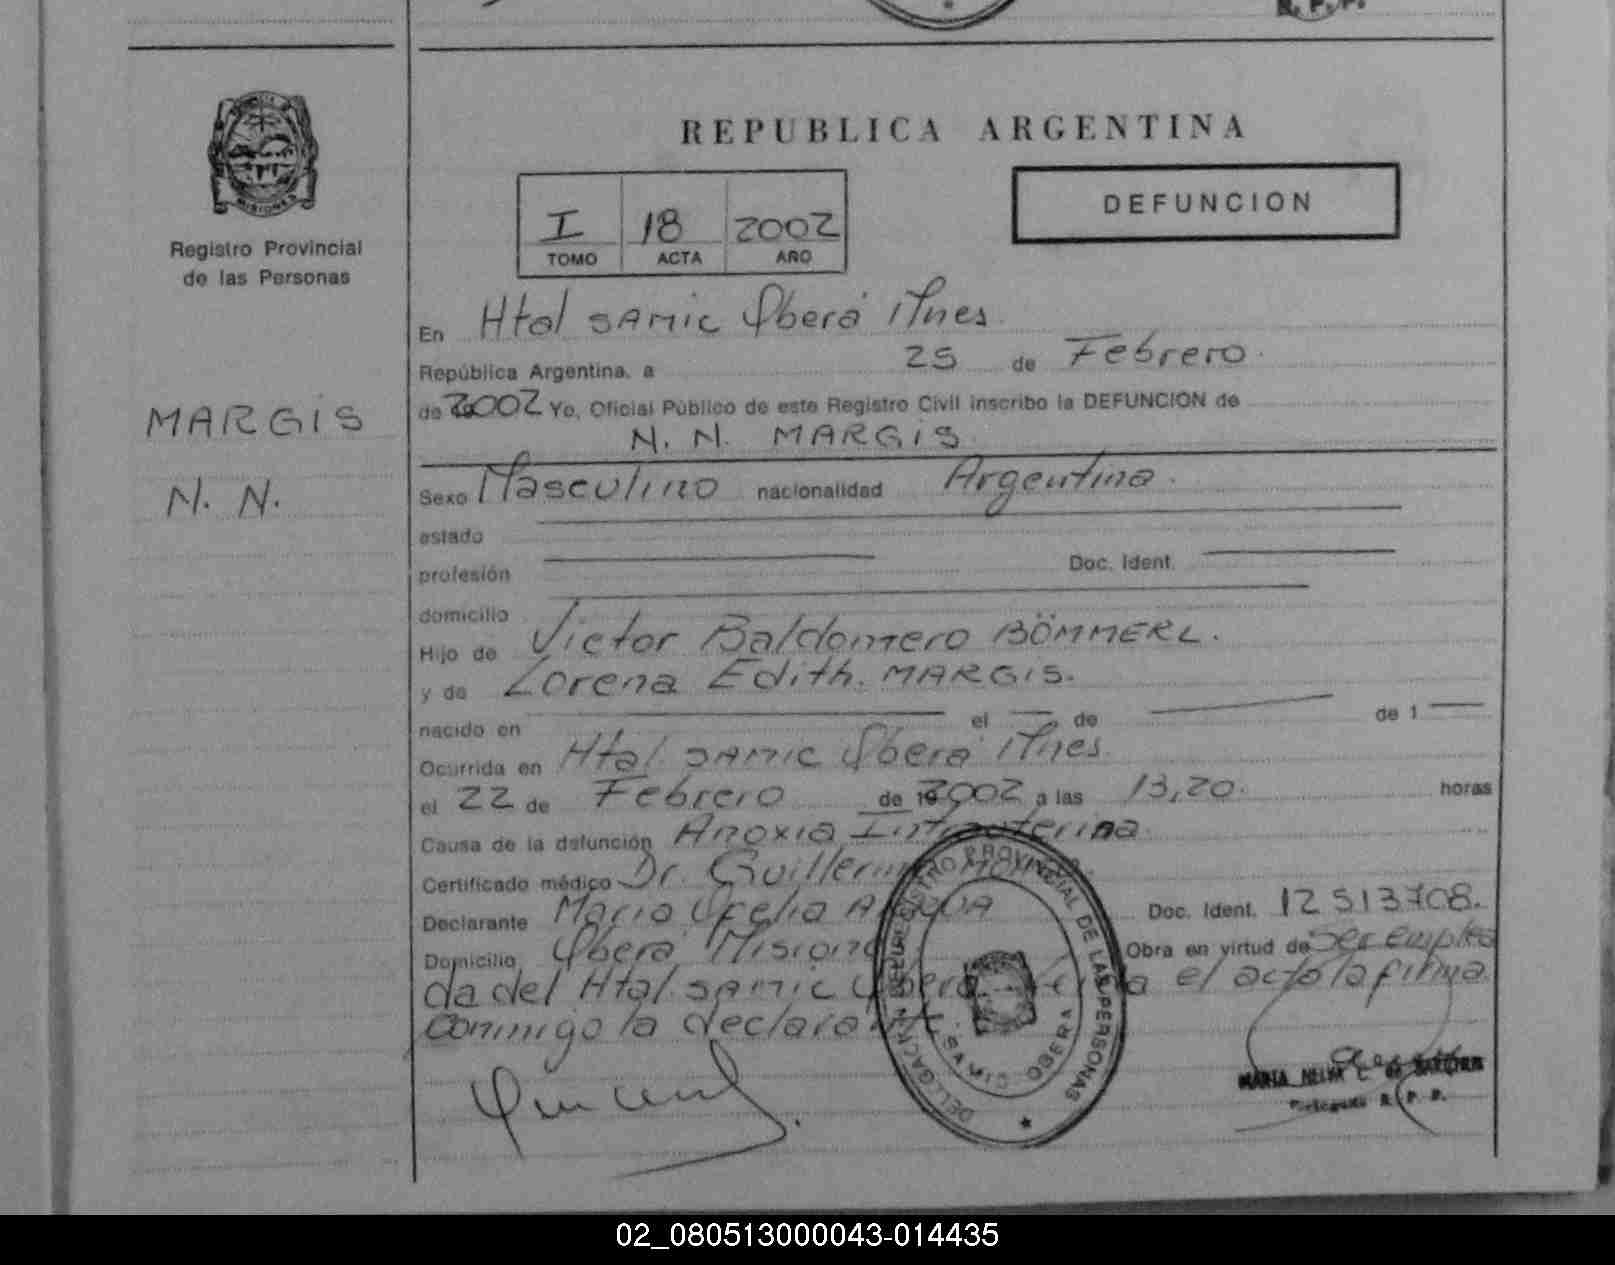 R. P. P.
MISIONES
Registro Provincial
de las Personas
MARGIS
N. N.
REPUBLICA ARGENTINA
I 18 2002
TOMO ACTA AÑO
DEFUNCION
En Htal SAMIC Oberá Mnes.
República Argentina, a 25 de Febrero.
de 2002 Yo, Oficial Público de este Registro Civil inscribo la DEFUNCION de
N. N. MARGIS.
Sexo Masculino nacionalidad Argentina.
estado
profesión Doc. Ident.
domicilio
Hijo de Victor Baldomero BÖMMERL.
y de Lorena Edith. MARGIS.
nacido en el de de 1
Ocurrida en Htal. SAMIC Oberá Mnes.
el 22 de Febrero de 2002 a las 13,20. horas
Causa de la defunción Anoxia Intrauterina.
Certificado médico Dr. Guillermo
Declarante Maria Ofelia Doc. Ident. 12 513708.
Domicilio Oberá Misiones Obra en virtud de Ser emplea
da del Htal. SAMIC Oberá el acto la firma
Conmigo la declarante.
REGISTRO PROVINCIAL DE LAS PERSONAS
SAMIC OBERA
MARIA
R. P. P.
02_080513000043-014435